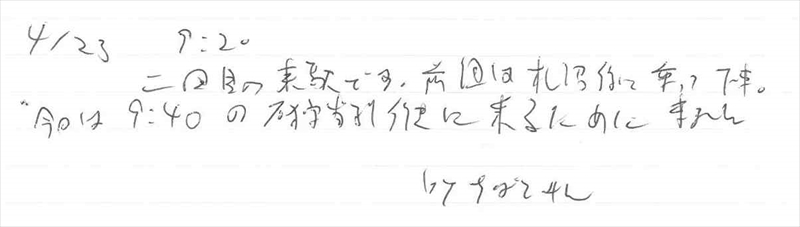 4/23 9:20
二回目の来駅です。前回は札沼線に乗って下車。
今日は 9:40 の石狩当別行に乗るために来ました
by